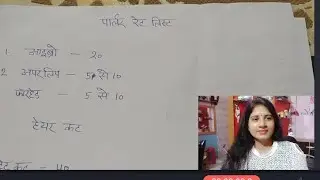 पार्लर रेट लिस्ट
1. आइब्रो - 20
2 अपरलिप - 5 से 10
फारहेड - 5 से 10
हेयर कट
कट - 40